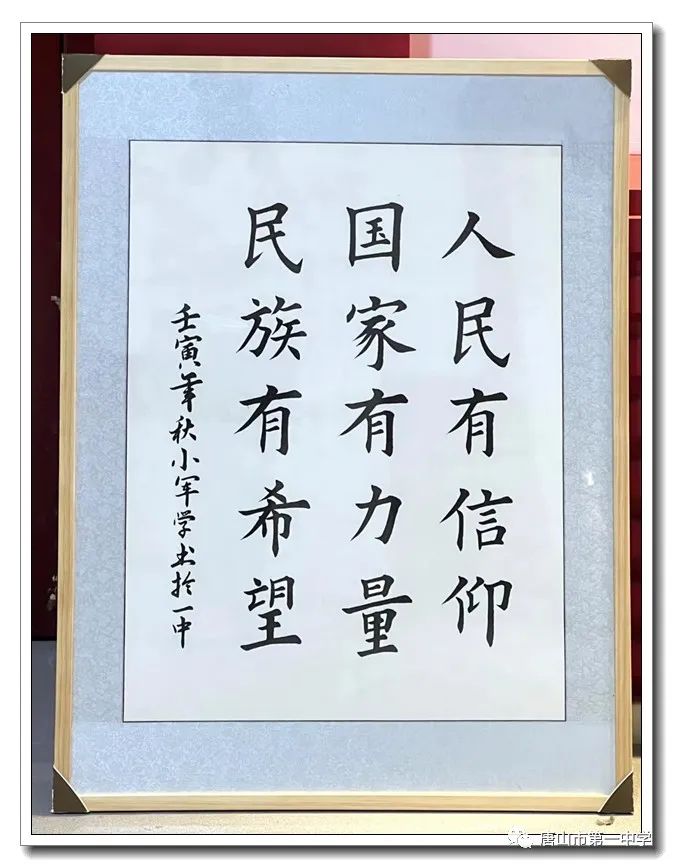 人民有信仰
国家有力量
民族有希望
壬寅年秋小军学书于一中
唐山市第一中学